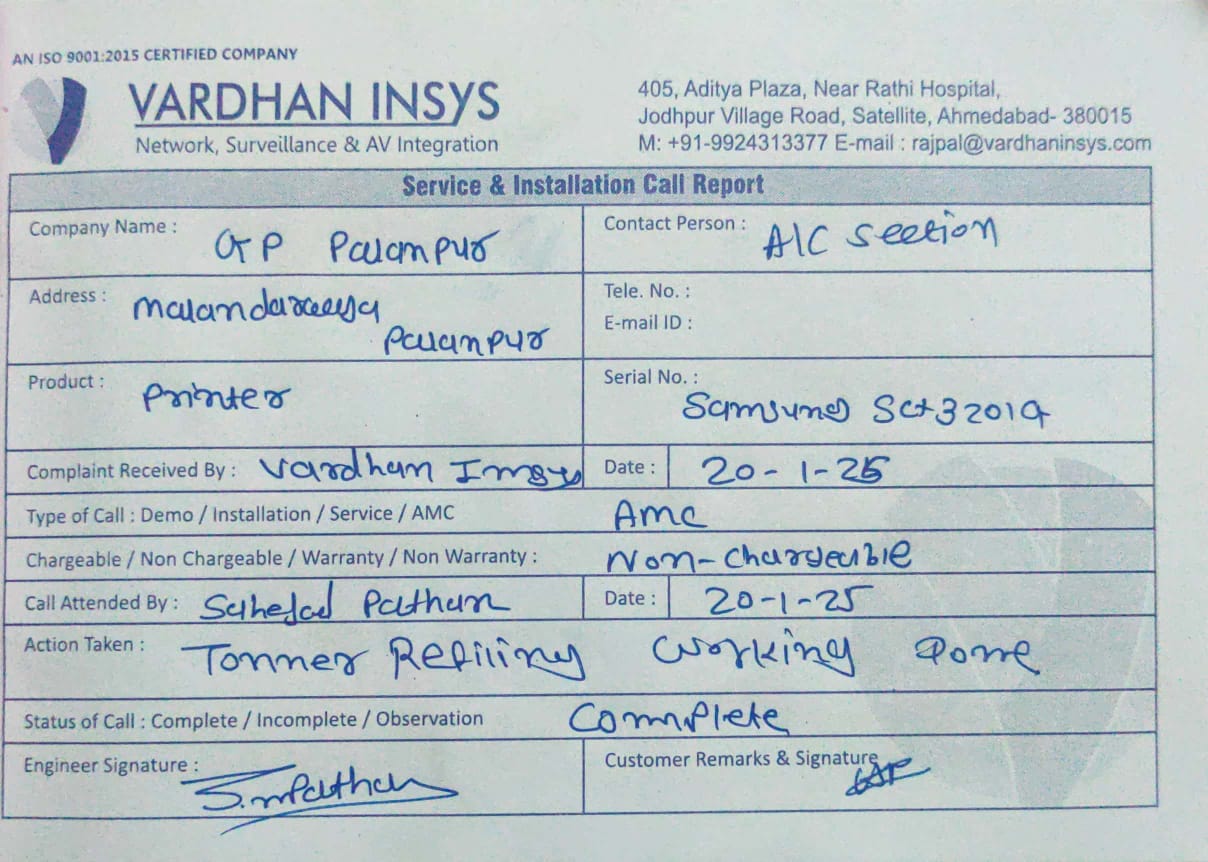 AN ISO 9001:2015 CERTIFIED COMPANY
VARDHAN INSYS
Network, Surveillance & AV Integration
405, Aditya Plaza, Near Rathi Hospital,
Jodhpur Village Road, Satellite, Ahmedabad- 380015
M: +91-9924313377 E-mail : rajpal@vardhaninsys.com
Service & Installation Call Report
Company Name : GP Palanpur
Contact Person : A/C Section
Address : Malandarwaja
Palanpur
Tele. No. :
E-mail ID :
Product : Printer
Serial No. :
Samsung
Complaint Received By : Vardhan Insys Date : 20-1-25
Type of Call : Demo / Installation / Service / AMC AMC
Chargeable / Non Chargeable / Warranty / Non Warranty : Non-Chargeable
Call Attended By : Sahejad Pathan Date : 20-1-25
Action Taken : Tonner Refiling Working Done
Status of Call : Complete / Incomplete / Observation Complete
Engineer Signature : S.mPathan
Customer Remarks & Signature